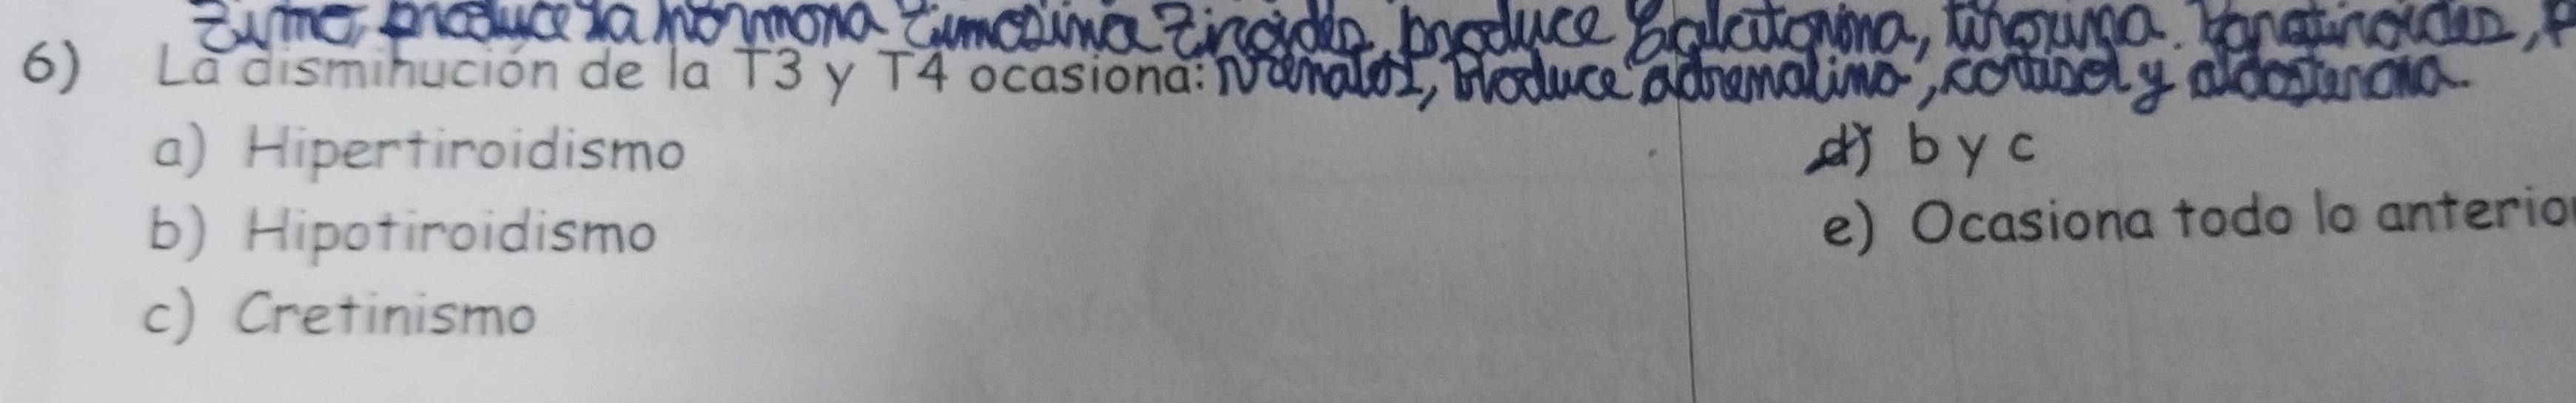 Timo, produce la hormona timosina Tiroides, produce Calcitonina, tiroxina. Paratiroides, P
6) La disminución de la T3 y T4 ocasiona: produce adrenalina, cortisol y aldosterona.
a) Hipertiroidismo
b) Hipotiroidismo
c) Cretinismo
d) b y c
e) Ocasiona todo lo anterio